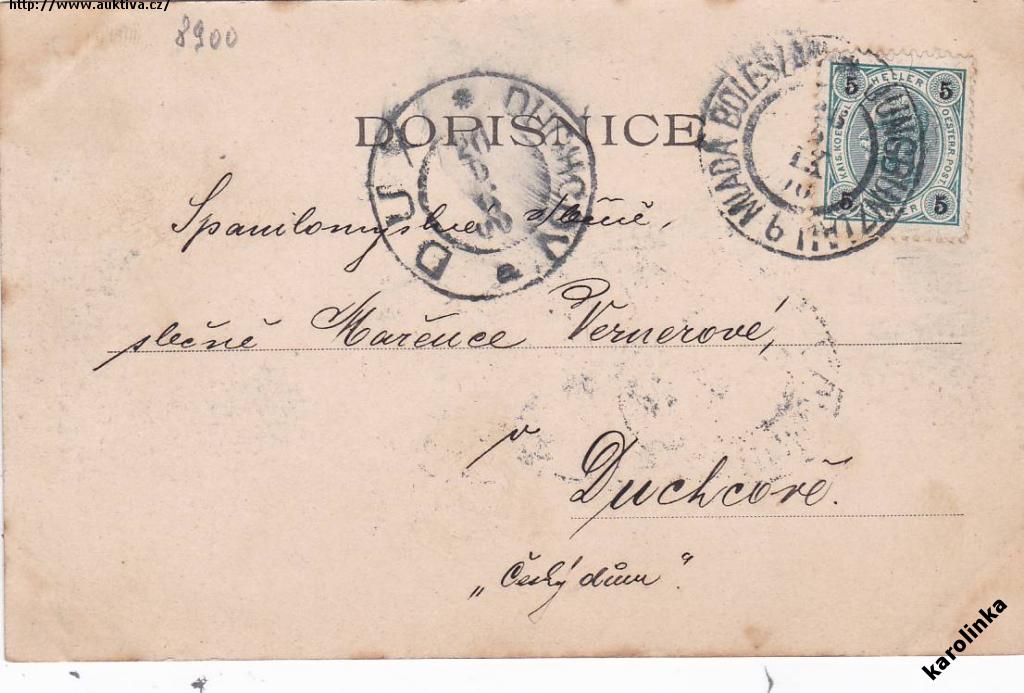 http://www.auktiva.cz/
8900
DOPISNICE
DUX * DUCHCOV *
MLADÁ BOLESLAV JUNGBUNZLAU
5 HELLER 5
KAIS. KOENIGL. OESTERR. POST
5 HELLER 5
Spanilomyslná slečně,
slečně Mařence Vernerové,
v
Duchcově.
„Český dům".
karolinka